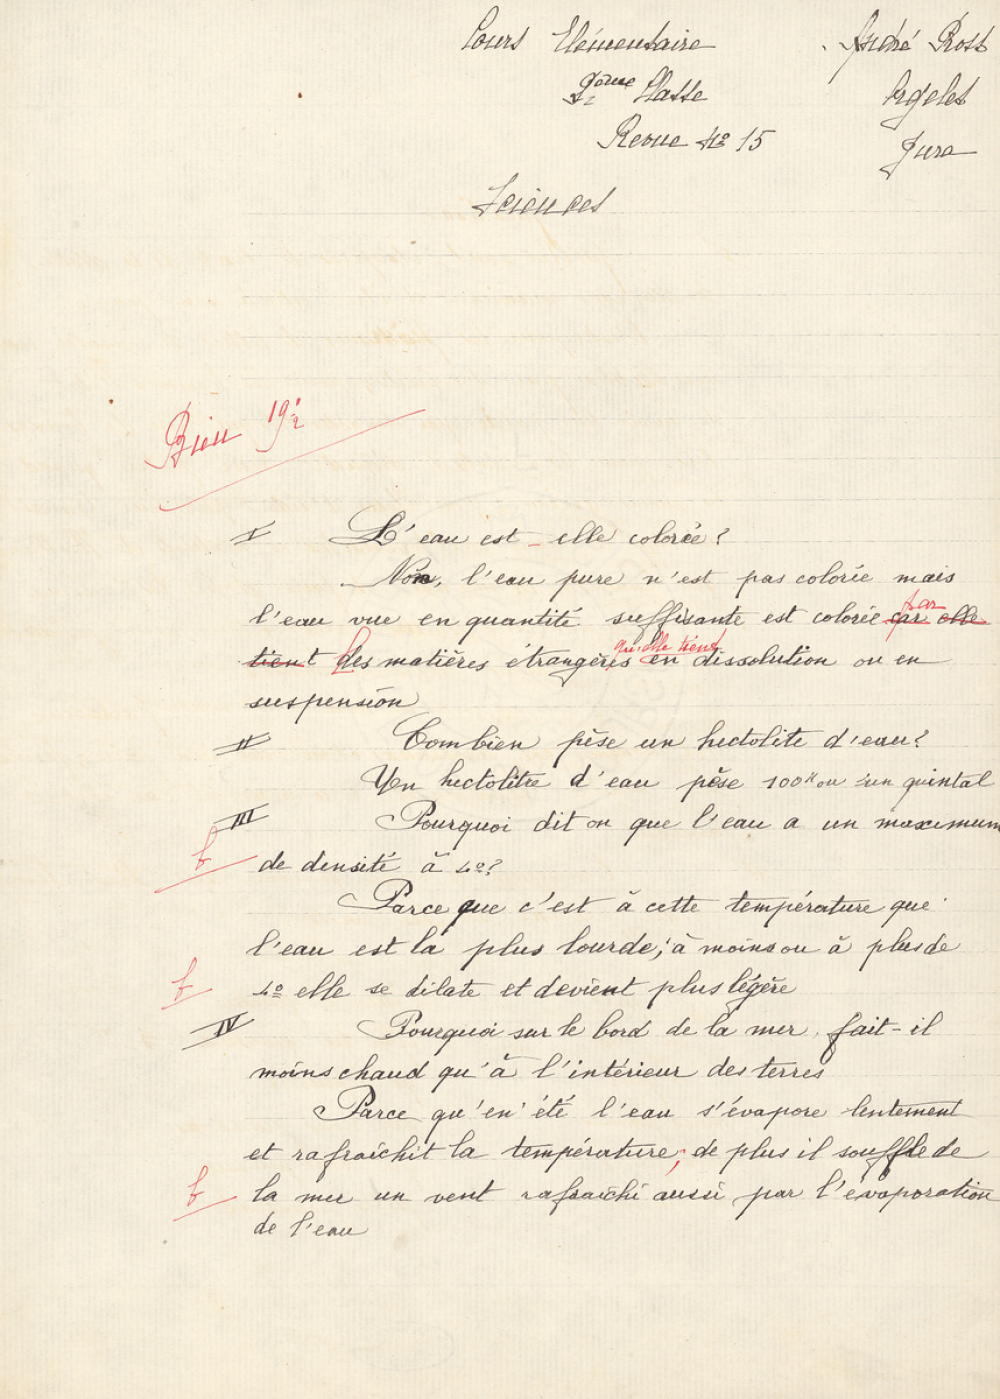 Cours Elémentaire
André Rost
2ème Classe
Argelès
Revue No 15
Jura
Sciences
Bien 19 1/2
I L'eau est-elle colorée?
Non, l'eau pure n'est pas colorée mais
l'eau vue en quantité suffisante est colorée car elle par
tient des matières étrangères qu'elle tient en dissolution ou en
suspension
II Combien pèse un hectolite d'eau?
Un hectolitre d'eau pèse 100K ou un quintal
III Pourquoi dit on que l'eau a un maximum
b de densité à 4o?
Parce que c'est à cette température que
l'eau est la plus lourde; à moins ou à plus de
b 4o elle se dilate et devient plus légère
IV Pourquoi sur le bord de la mer, fait-il
moins chaud qu'à l'intérieur des terres
Parce qu'en été l'eau s'évapore lentement
et rafraîchit la température; de plus il souffle de
b la mer un vent rafraichi aussi par l'évaporation
de l'eau